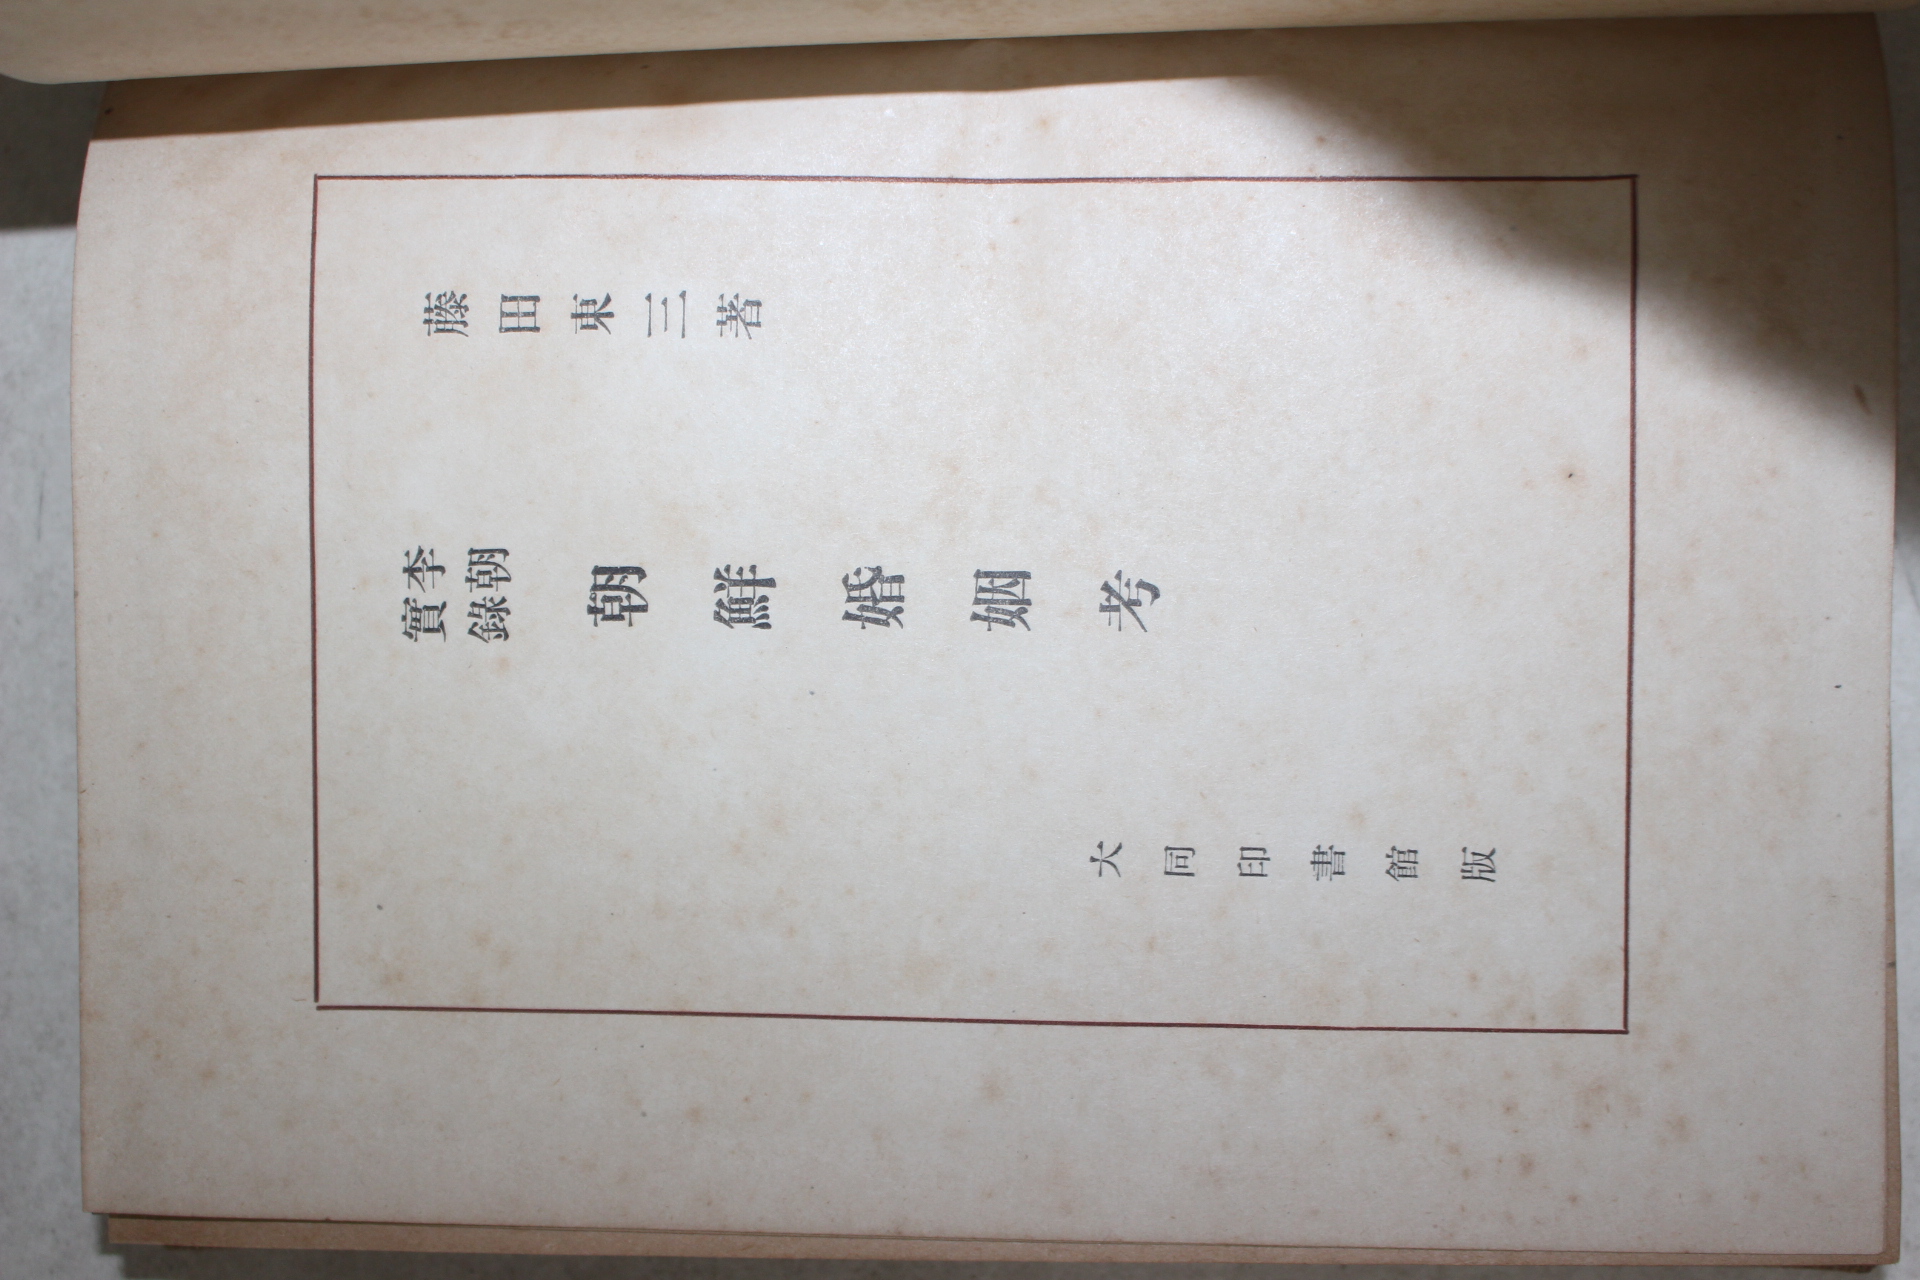 藤田東三著
李朝
實錄
朝鮮婚姻考
大同印書館版